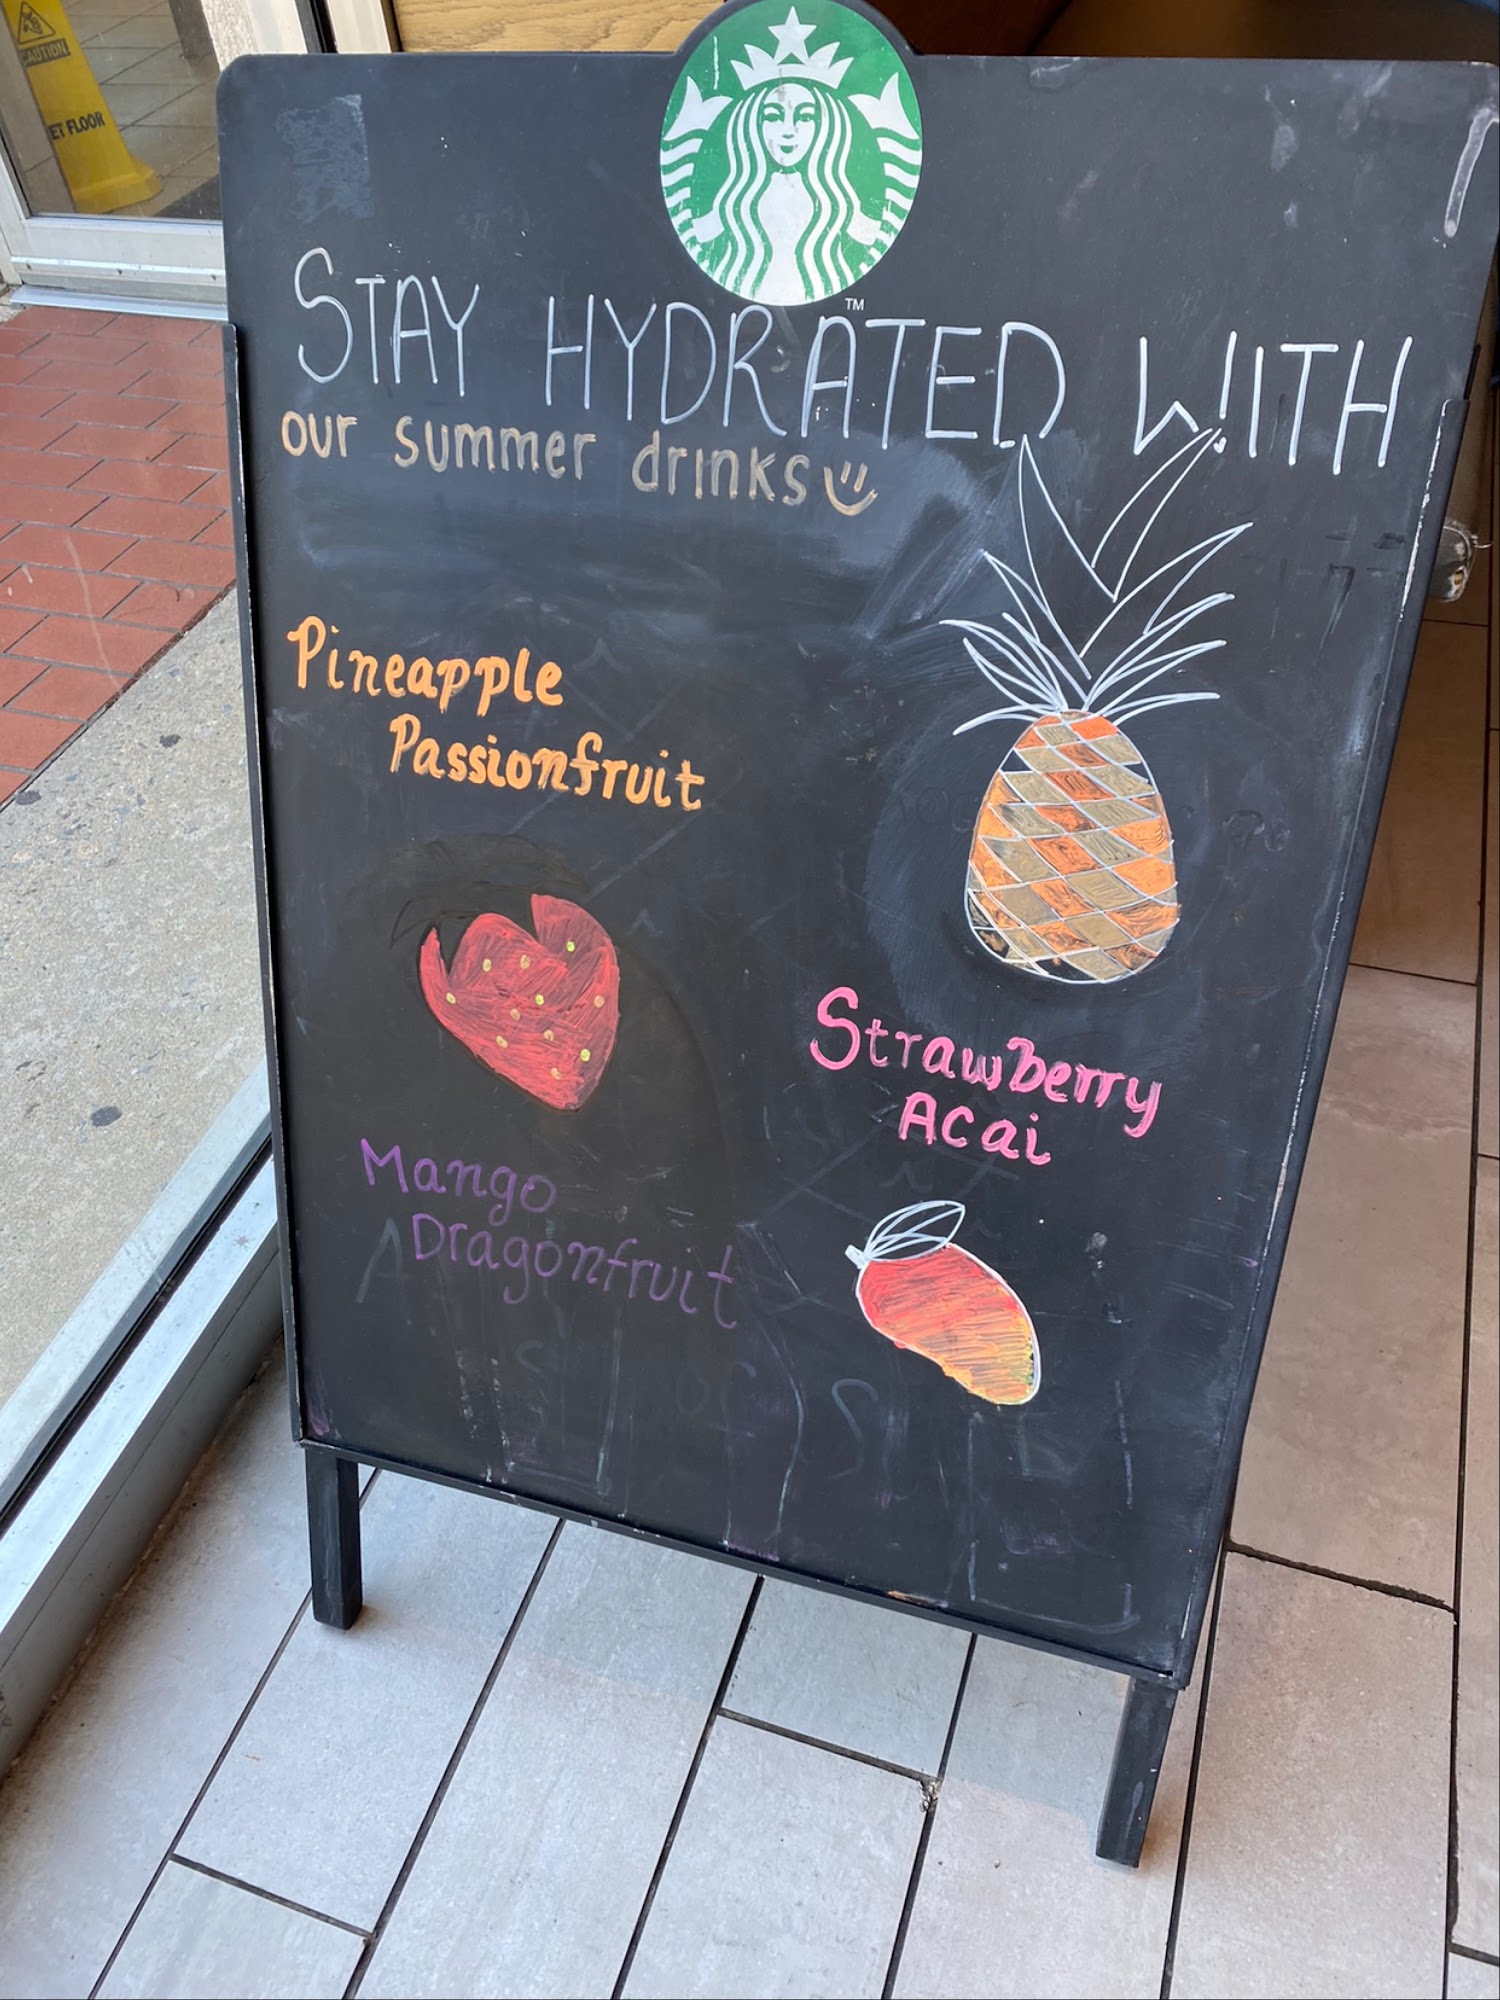 CAUTION
ET FLOOR
TM
STAY HYDRATED WITH
our summer drinks
Pineapple
Passionfruit
Strawberry
Acai
Mango
Dragonfruit